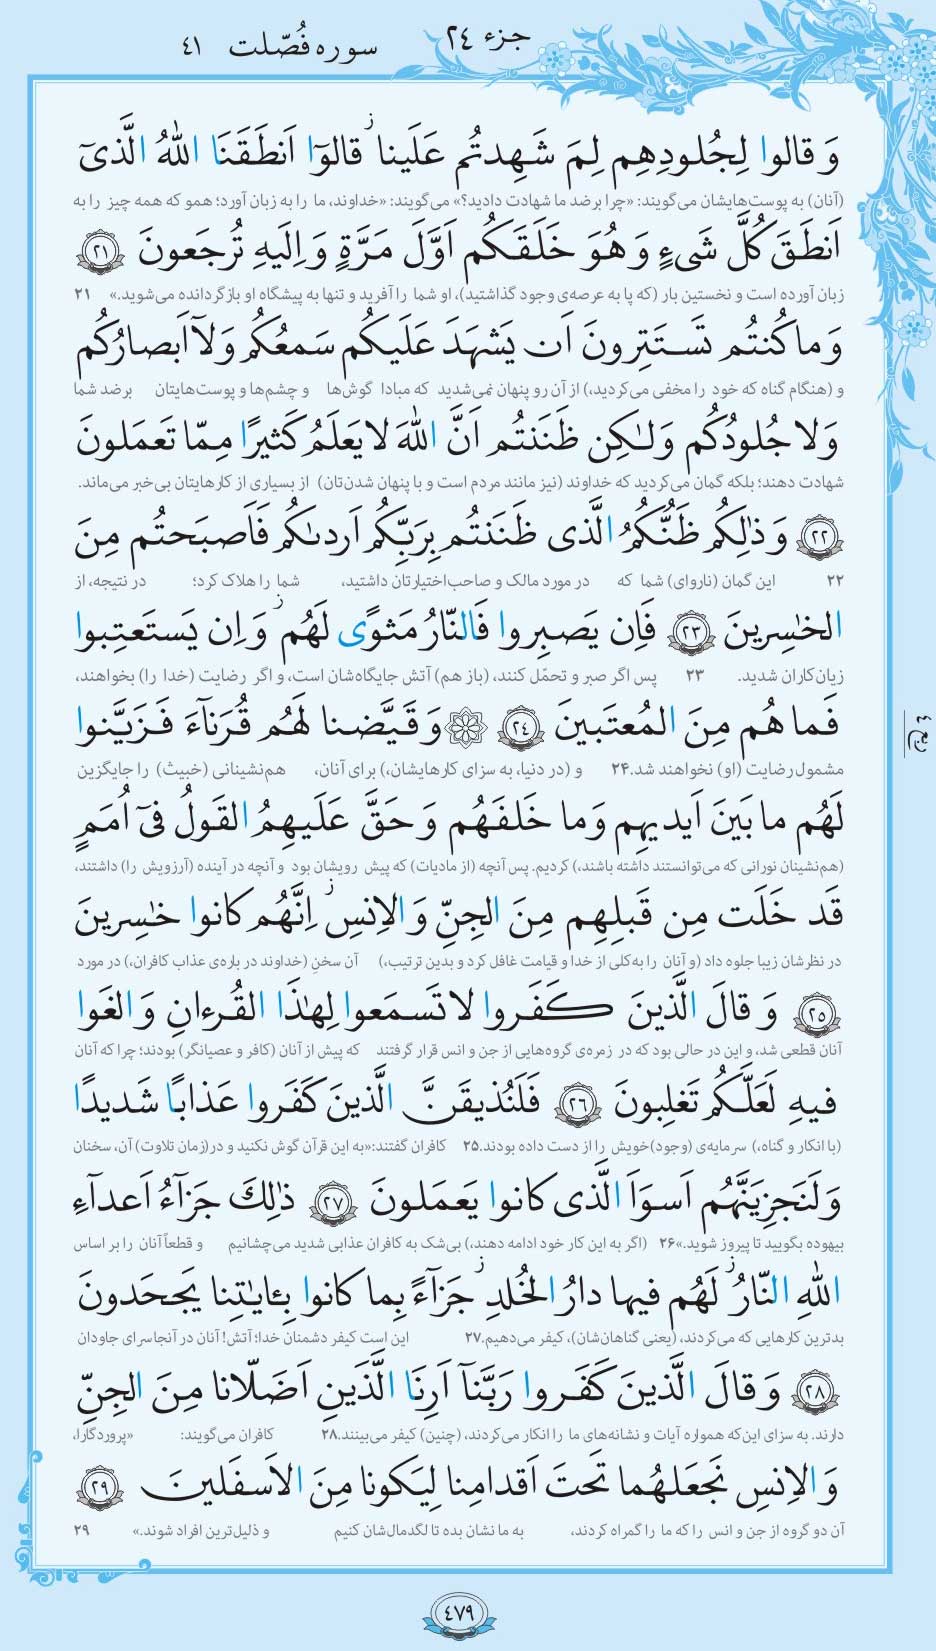 جزء ٢٤
سوره فُصّلت ٤١
وَ قالوا لِجُلودِهِم لِمَ شَهِدتُم عَلَينا ۖ قالوٓا اَنطَقَنَا اللّٰهُ الَّذىٓ
(آنان) به پوست‌هایشان می‌گویند: «چرا برضد ما شهادت دادید؟» می‌گویند: «خداوند، ما را به زبان آورد؛ همو که همه چیز را به
اَنطَقَ كُلَّ شَىءٍ وَ هُوَ خَلَقَكُم اَوَّلَ مَرَّةٍ وَ اِلَيهِ تُرجَعونَ ٢١
زبان آورده است و نخستین بار (که پا به عرصه‌ی وجود گذاشتید)، او شما را آفرید و تنها به پیشگاه او بازگردانده می‌شوید.» ۲۱
وَ ما كُنتُم تَستَتِرونَ اَن يَشهَدَ عَلَيكُم سَمعُكُم وَ لآ اَبصارُكُم
و (هنگام گناه که خود را مخفی می‌کردید،) از آن رو پنهان نمی‌شدید که مبادا گوش‌ها و چشم‌ها و پوست‌هایتان برضد شما
وَ لا جُلودُكُم وَ لٰكِن ظَنَنتُم اَنَّ اللّٰهَ لا يَعلَمُ كَثيرًا مِمّا تَعمَلونَ
شهادت دهند؛ بلکه گمان می‌کردید که خداوند (نیز مانند مردم است و با پنهان شدن‌تان) از بسیاری از کارهایتان بی‌خبر می‌ماند.
٢٢ وَ ذٰلِكُم ظَنُّكُمُ الَّذى ظَنَنتُم بِرَبِّكُم اَردىٰكُم فَاَصبَحتُم مِنَ
۲۲ این گمان (ناروای) شما که در مورد مالک و صاحب‌اختیارتان داشتید، شما را هلاک کرد؛ در نتیجه، از
الخٰسِرينَ ٢٣ فَاِن يَصبِروا فَالنّارُ مَثوًى لَهُم ۖ وَ اِن يَستَعتِبوا
زیان‌کاران شدید. ۲۳ پس اگر صبر و تحمّل کنند، (باز هم) آتش جایگاه‌شان است، و اگر رضایت (خدا را) بخواهند،
فَما هُم مِنَ المُعتَبينَ ٢٤ ۞ وَ قَيَّضنا لَهُم قُرَنآءَ فَزَيَّنوا
مشمول رضایت (او) نخواهند شد. ۲۴ و (در دنیا، به سزای کارهایشان،) برای آنان، هم‌نشینانی (خبیث) را جایگزین
ربع ٤
لَهُم ما بَينَ اَيديهِم وَ ما خَلفَهُم وَ حَقَّ عَلَيهِمُ القَولُ فىٓ اُمَمٍ
(هم‌نشینان نورانی که می‌توانستند داشته باشند،) کردیم. پس آنچه (از مادیات) که پیش رویشان بود و آنچه در آینده (آرزویش را) داشتند،
قَد خَلَت مِن قَبلِهِم مِنَ الجِنِّ وَ الاِنسِ ۖ اِنَّهُم كانوا خٰسِرينَ
در نظرشان زیبا جلوه داد (و آنان را به‌کلی از خدا و قیامت غافل کرد و بدین ترتیب،) آن سخنِ (خداوند در باره‌ی عذاب کافران،) در مورد
٢٥ وَ قالَ الَّذينَ كَفَروا لا تَسمَعوا لِهٰذَا القُرءانِ وَ الغَوا
آنان قطعی شد، و این در حالی بود که در زمره‌ی گروه‌هایی از جن و انس قرار گرفتند که پیش از آنان (کافر و عصیانگر) بودند؛ چرا که آنان
فيهِ لَعَلَّكُم تَغلِبونَ ٢٦ فَلَنُذيقَنَّ الَّذينَ كَفَروا عَذابًا شَديدًا
(با انکار و گناه،) سرمایه‌ی (وجود) خویش را از دست داده بودند. ۲۵ کافران گفتند: «به این قرآن گوش نکنید و در (زمان تلاوت) آن، سخنان
وَ لَنَجزِيَنَّهُم اَسوَاَ الَّذى كانوا يَعمَلونَ ٢٧ ذٰلِكَ جَزآءُ اَعدآءِ
بیهوده بگویید تا پیروز شوید.» ۲۶ (اگر به این کار خود ادامه دهند،) بی‌شک به کافران عذابی شدید می‌چشانیم و قطعاً آنان را بر اساس
اللّٰهِ النّارُ ۖ لَهُم فيها دارُ الخُلدِ ۖ جَزآءً بِما كانوا بِـٔايٰتِنا يَجحَدونَ
بدترین کارهایی که می‌کردند، (یعنی گناهان‌شان)، کیفر می‌دهیم. ۲۷ این است کیفر دشمنان خدا؛ آتش! آنان در آنجا سرای جاودان
٢٨ وَ قالَ الَّذينَ كَفَروا رَبَّنآ اَرِنَا الَّذَينِ اَضَلّانا مِنَ الجِنِّ
دارند. به سزای این‌که همواره آیات و نشانه‌های ما را انکار می‌کردند، (چنین) کیفر می‌بینند. ۲۸ کافران می‌گویند: «پروردگارا،
وَ الاِنسِ نَجعَلهُما تَحتَ اَقدامِنا لِيَكونا مِنَ الاَسفَلينَ ٢٩
آن دو گروه از جن و انس را که ما را گمراه کردند، به ما نشان بده تا لگدمال‌شان کنیم و ذلیل‌ترین افراد شوند.» ۲۹
٤٧٩